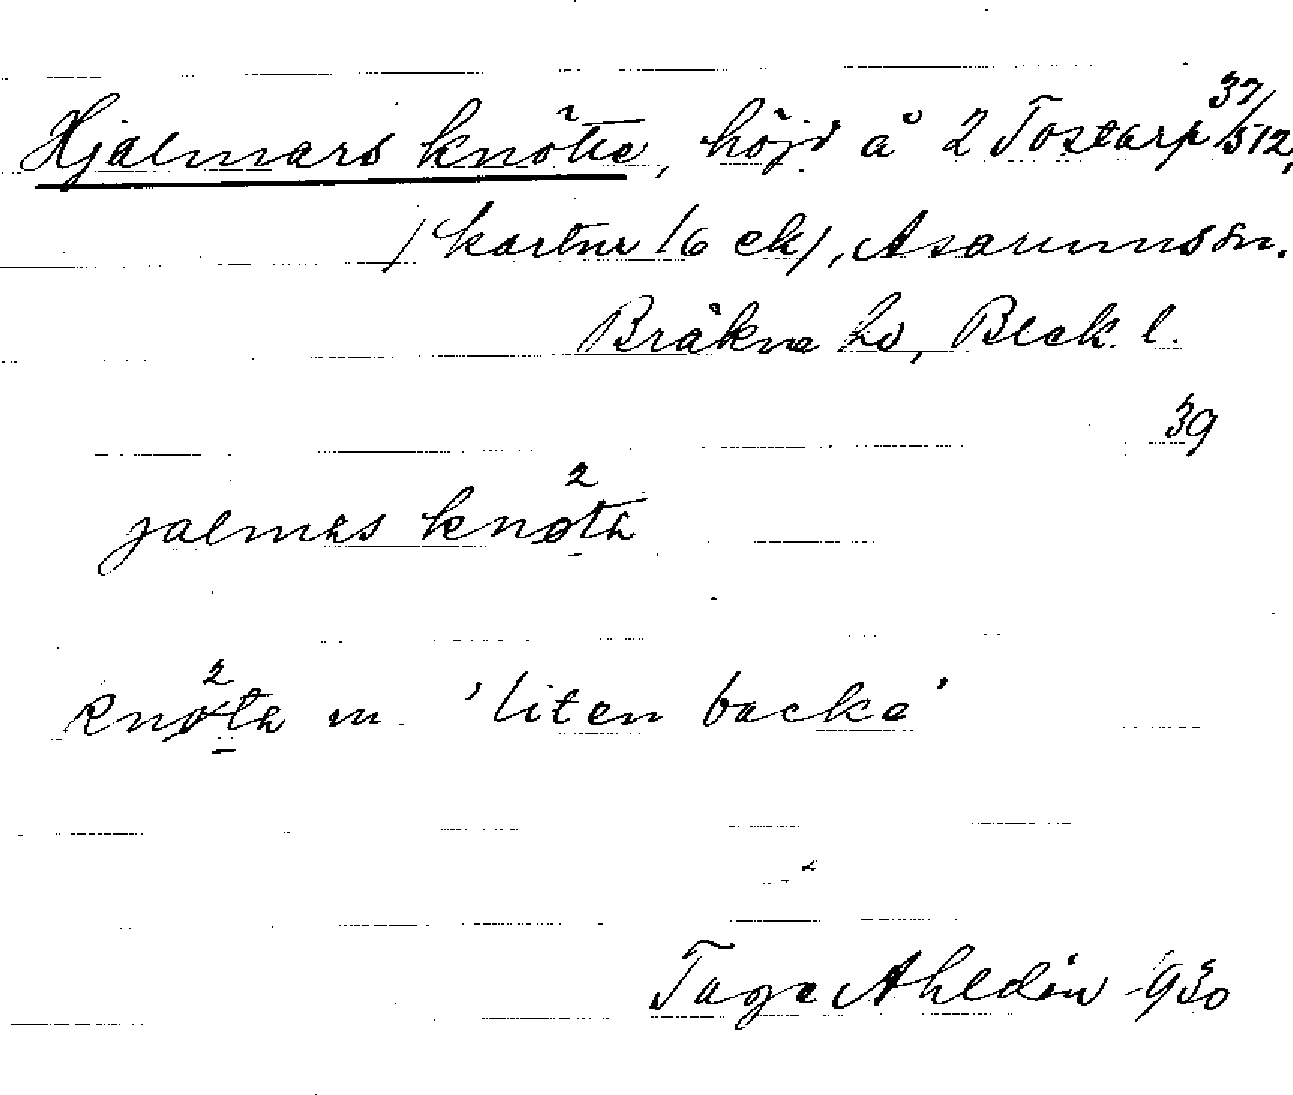 Hjalmars knöte, höjd å 2 Tostarp 37/512,
(kartnr 16 ek), Asarums sn.
Bräkne hd, Blek. l.
39
jalmas knøta
knøta m. 'liten backe'
Tage Ahldén 1930